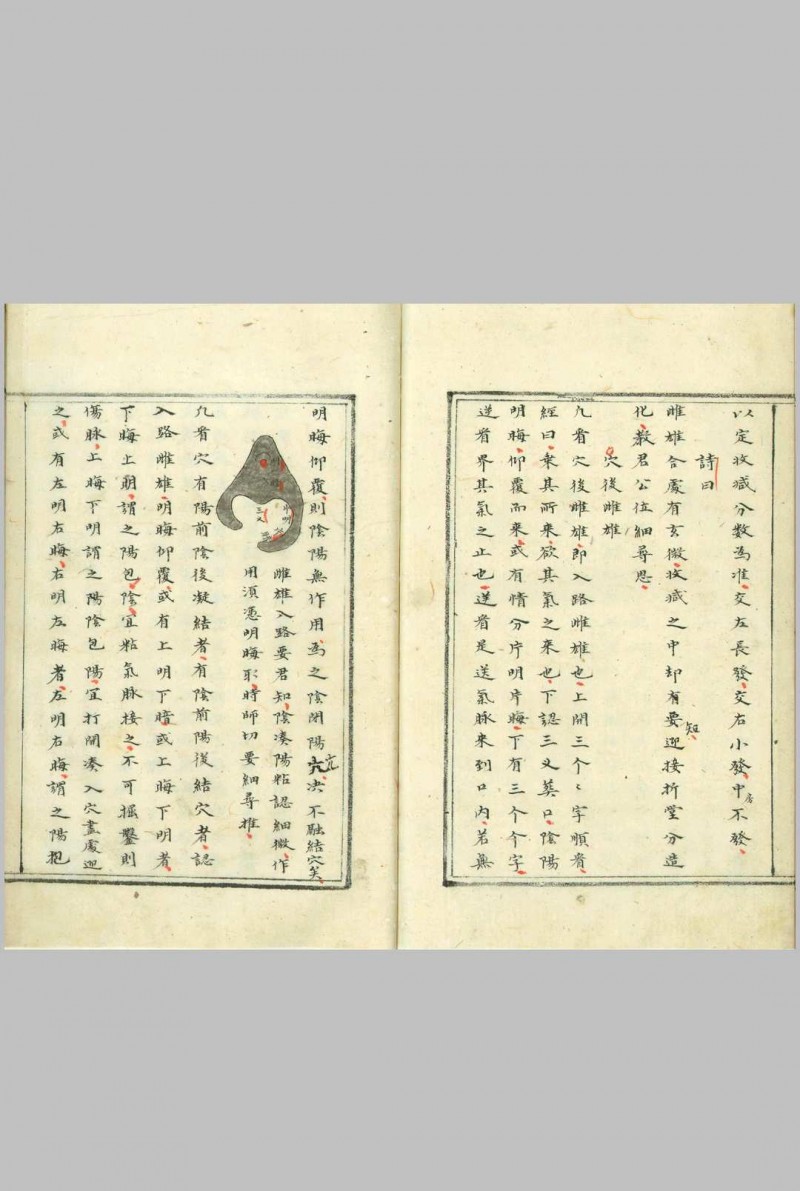 以定收藏分數為准交左長發交右小發中房不發
詩曰
雌雄合處有玄微收藏之中却有要知迎接折堂分造
化教君公位細尋思
穴後雌雄
凡看穴後雌雄即入路雌雄也上開三个〻字順看
經曰乘其所來欲其氣之來也下認三叉葬口陰陽
明晦仰覆而來或有情分片明片晦下有三个介字
逆看界其氣之止也逆看是送氣脉來到口內若無
明晦仰覆則陰陽無作用為之陰閉陽亢决不融結穴矣
雌雄入路要君知陰凑陽粘認細微作
用須憑明晦取時師切要細尋推
凡看穴有陽前陰後凝結者有陰前陽後結穴者認
入路雌雄明晦仰覆或有上明下暗或上晦下明者
下晦上明謂之陽包陰宜粘氣脉接之不可掘鑿則
傷脉上晦下明謂之陽陰包陽宜打開凑入穴盡處迎
之或有左明右晦右明左晦者左明右晦謂之陽抱